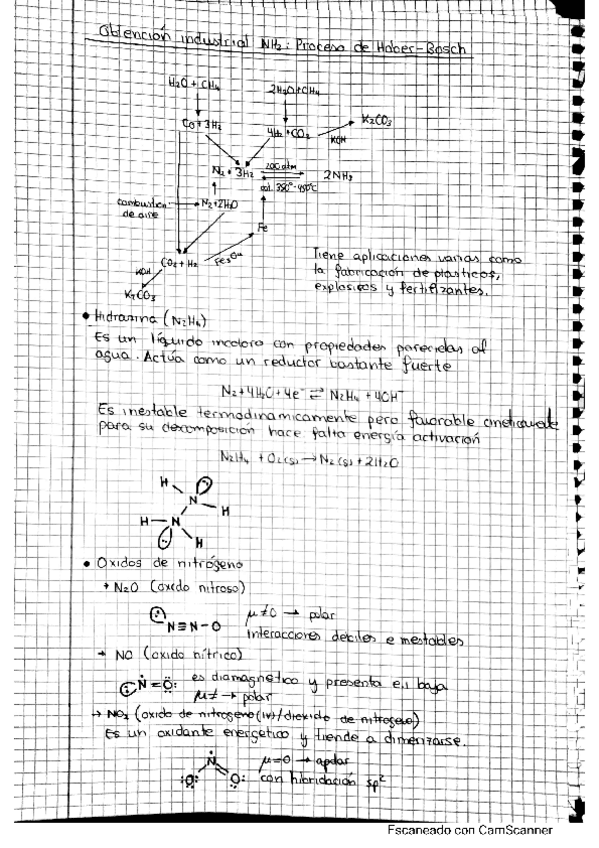 Obtención industrial NH₂: Proceso de Haber-Bosch
H₂O + CH₄
2H₂O + CH₄
CO + 3H₂
4H₂ + CO₂
KOH
K₂CO₃
N₂ + 3H₂
200 atm
cat. 380°-450°C
2NH₃
combustión de aire
N₂ + 2H₂O
Fe
CO₂ + H₂
Fe₃O₄
KOH
K₂CO₃
Tiene aplicaciones varias como
la fabricación de plásticos,
explosivos y fertilizantes.
• Hidrazina (N₂H₄)
Es un líquido incoloro con propiedades parecidas al
agua. Actúa como un reductor bastante fuerte
N₂ + 4H₂O + 4e⁻ ⇌ N₂H₄ + 4OH⁻
Es inestable termodinamicamente pero favorable cineticamente
para su decomposición hace falta energía activación
N₂H₄ + O₂(g) → N₂(g) + 2H₂O
H
N
H
H – N
H
• Oxidos de nitrógeno
→ N₂O (oxido nitroso)
N≡N–O
μ≠0 → polar
Interacciones debiles e inestables
→ NO (oxido nítrico)
N=O:
es diamagnetico y presenta e.i baja
μ≠ → polar
→ NO₂ (oxido de nitrogeno(IV)/dioxido de nitrogeno)
Es un oxidante energetico y tiende a dimerizarse.
N
O
O
μ=0 → apolar
con hibridación sp²
Escaneado con CamScanner